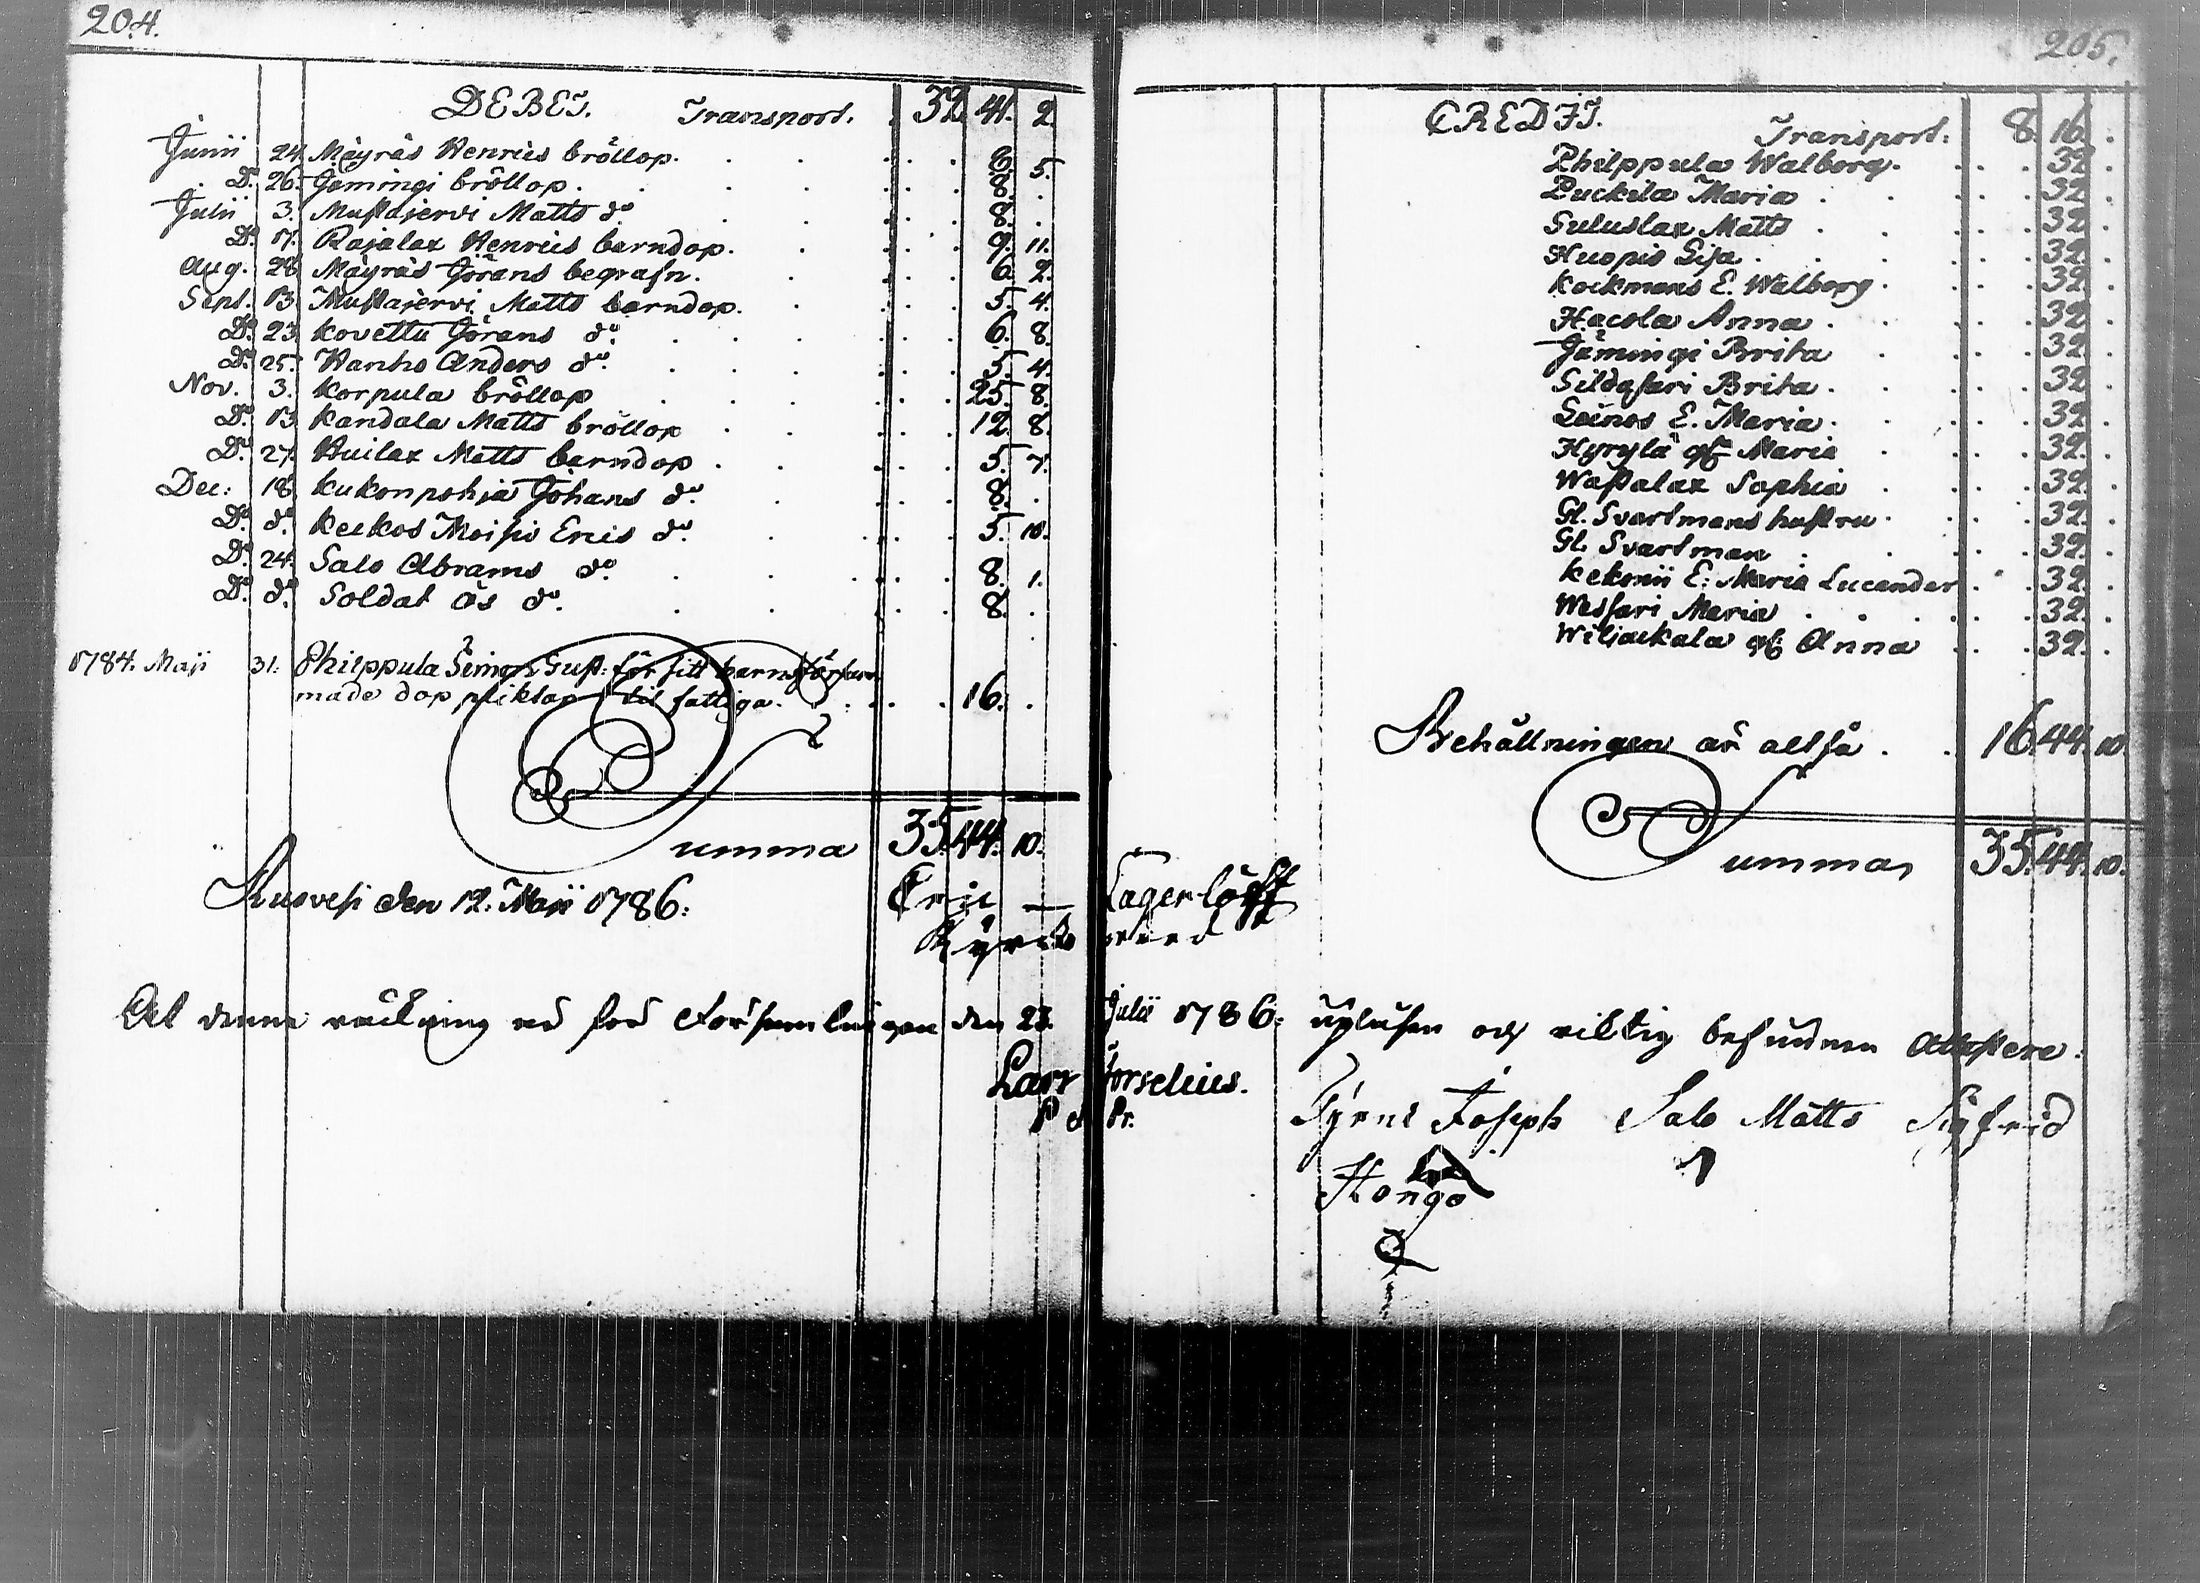 204.
DEBET. Transport. 32. 41. 2.
Junii 24. Mäyräs Henrics bröllop. 8. 5.
D:o 26. Jämingi bröllop. 8. .
Julii 3. Mustajervi Matts d:o 8. .
D:o 17. Rajalax Henrics barndop. 9. 11.
Aug. 28. Mäyräs Görans begrafn. 6. 2.
Sept. 13. Mustajervi Matts barndop. 5. 4.
D:o 23. Kovettu Görans d:o 6. 8.
D:o 25. Hanho Anders d:o 5. 4.
Nov. 3. Korpula bröllop 25. 8.
D:o 13. Kandala Matts bröllop 12. 8.
D:o 27. Huilax Matts barndop 5. 7.
Dec: 18. Kukonpohja Johans d:o 8. .
D:o d:o Keikos Moisio Erics d:o 5. 10.
D:o 24. Salo Abrams d:o 8. 1.
D:o d:o Soldat Ös d:o 8. .
1784. Maji 31. Philppula Simon Gust: för sitt barns försum
made dop pliktar til fattiga. 16. .
Summa 35. 44. 10.
Ruovesi den 12. Maji 1786. Eric Lagerlöff
Kyrck
At denna räckning är för Församlingen den 23. Julii 1786. upläsen och riktig befunnen attestera:
Lars Forselius.
P Pr.
Tyrni Joseph Salo Matts Sigfrid
Hongo
205.
CREDIT.
Transport: 8. 16. .
Philppula Walborg. 32. .
Puckila Maria 32. .
Suluslax Matts 32. .
Huopio Lisa 32. .
Kockmans E. Walborg 32. .
Hacola Anna 32. .
Jämingi Brita 32. .
Sildasari Brita 32. .
Leinos E. Maria 32. .
Hyrylä Maria 32. .
Wassalax Sophia 32. .
Gl. Svartmans hustru 32. .
Gl. Svartman 32. .
Kekonii E: Maria Lucander 32. .
Wessari Maria 32. .
Wiljackala Anna 32. .
Behållningen är altså 16. 44. 10.
Summa 35. 44. 10.